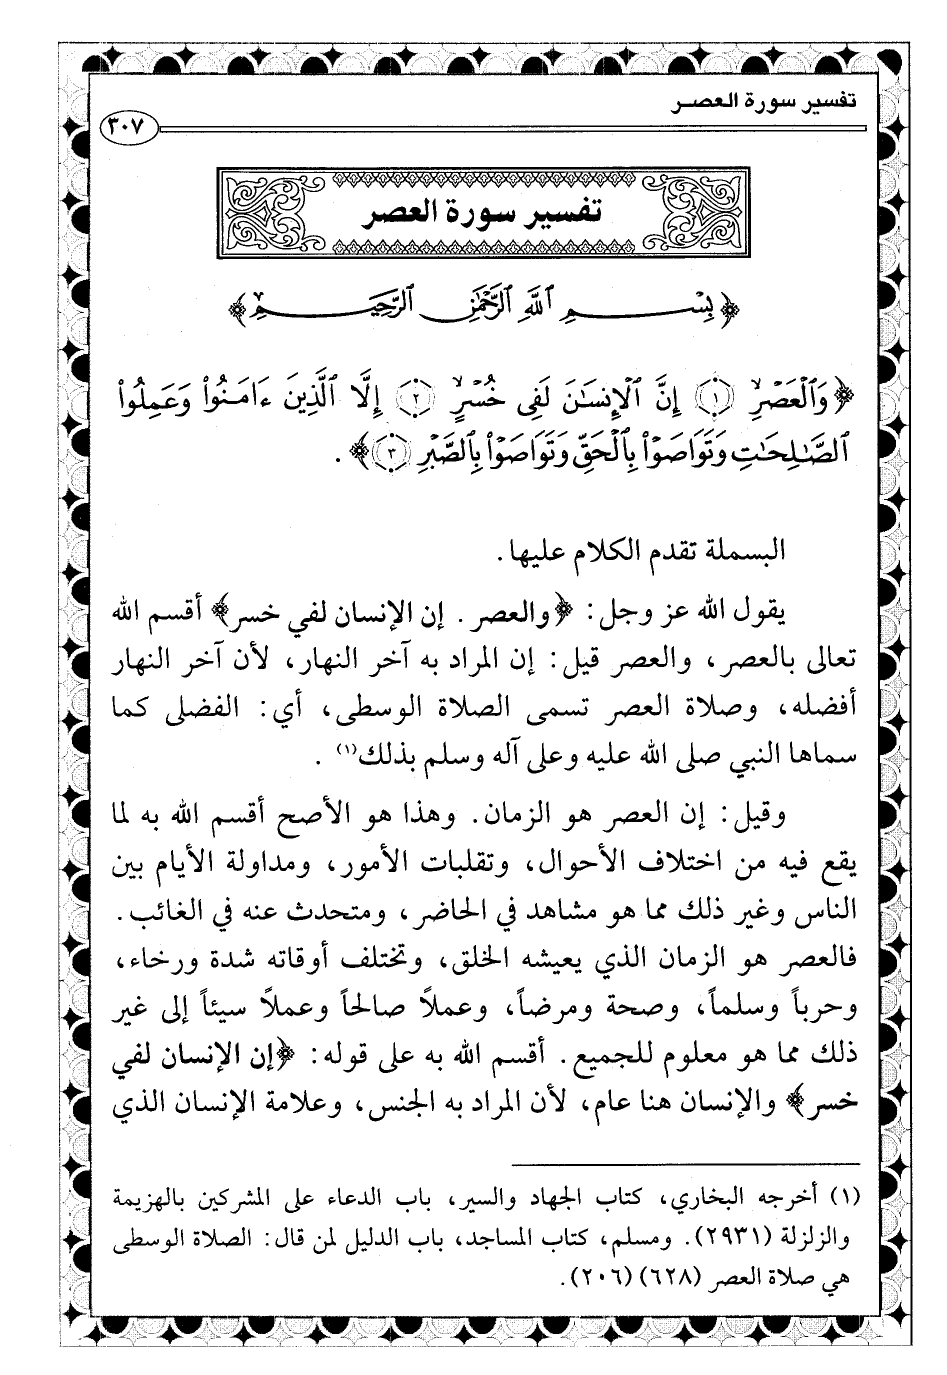 تفسير سورة العصر
٣٠٧
تفسير سورة العصر
﴿بِسْمِ ٱللَّهِ ٱلرَّحْمَٰنِ ٱلرَّحِيمِ﴾
﴿وَٱلْعَصْرِ ۝١ إِنَّ ٱلْإِنسَٰنَ لَفِى خُسْرٍ ۝٢ إِلَّا ٱلَّذِينَ ءَامَنُوا۟ وَعَمِلُوا۟
ٱلصَّٰلِحَٰتِ وَتَوَاصَوْا۟ بِٱلْحَقِّ وَتَوَاصَوْا۟ بِٱلصَّبْرِ ۝٣﴾ .
البسملة تقدم الكلام عليها.
يقول الله عز وجل: ﴿والعصر. إن الإنسان لفي خسر﴾ أقسم الله
تعالى بالعصر، والعصر قيل: إن المراد به آخر النهار، لأن آخر النهار
أفضله، وصلاة العصر تسمى الصلاة الوسطى، أي: الفضلى كما
سماها النبي صلى الله عليه وعلى آله وسلم بذلك(١) .
وقيل: إن العصر هو الزمان. وهذا هو الأصح أقسم الله به لما
يقع فيه من اختلاف الأحوال، وتقلبات الأمور، ومداولة الأيام بين
الناس وغير ذلك مما هو مشاهد في الحاضر، ومتحدث عنه في الغائب.
فالعصر هو الزمان الذي يعيشه الخلق، وتختلف أوقاته شدة ورخاء،
وحرباً وسلماً، وصحة ومرضاً، وعملاً صالحاً وعملاً سيئاً إلى غير
ذلك مما هو معلوم للجميع. أقسم الله به على قوله: ﴿إن الإنسان لفي
خسر﴾ والإنسان هنا عام، لأن المراد به الجنس، وعلامة الإنسان الذي
(١) أخرجه البخاري، كتاب الجهاد والسير، باب الدعاء على المشركين بالهزيمة
والزلزلة (٢٩٣١). ومسلم، كتاب المساجد، باب الدليل لمن قال: الصلاة الوسطى
هي صلاة العصر (٦٢٨) (٢٠٦).